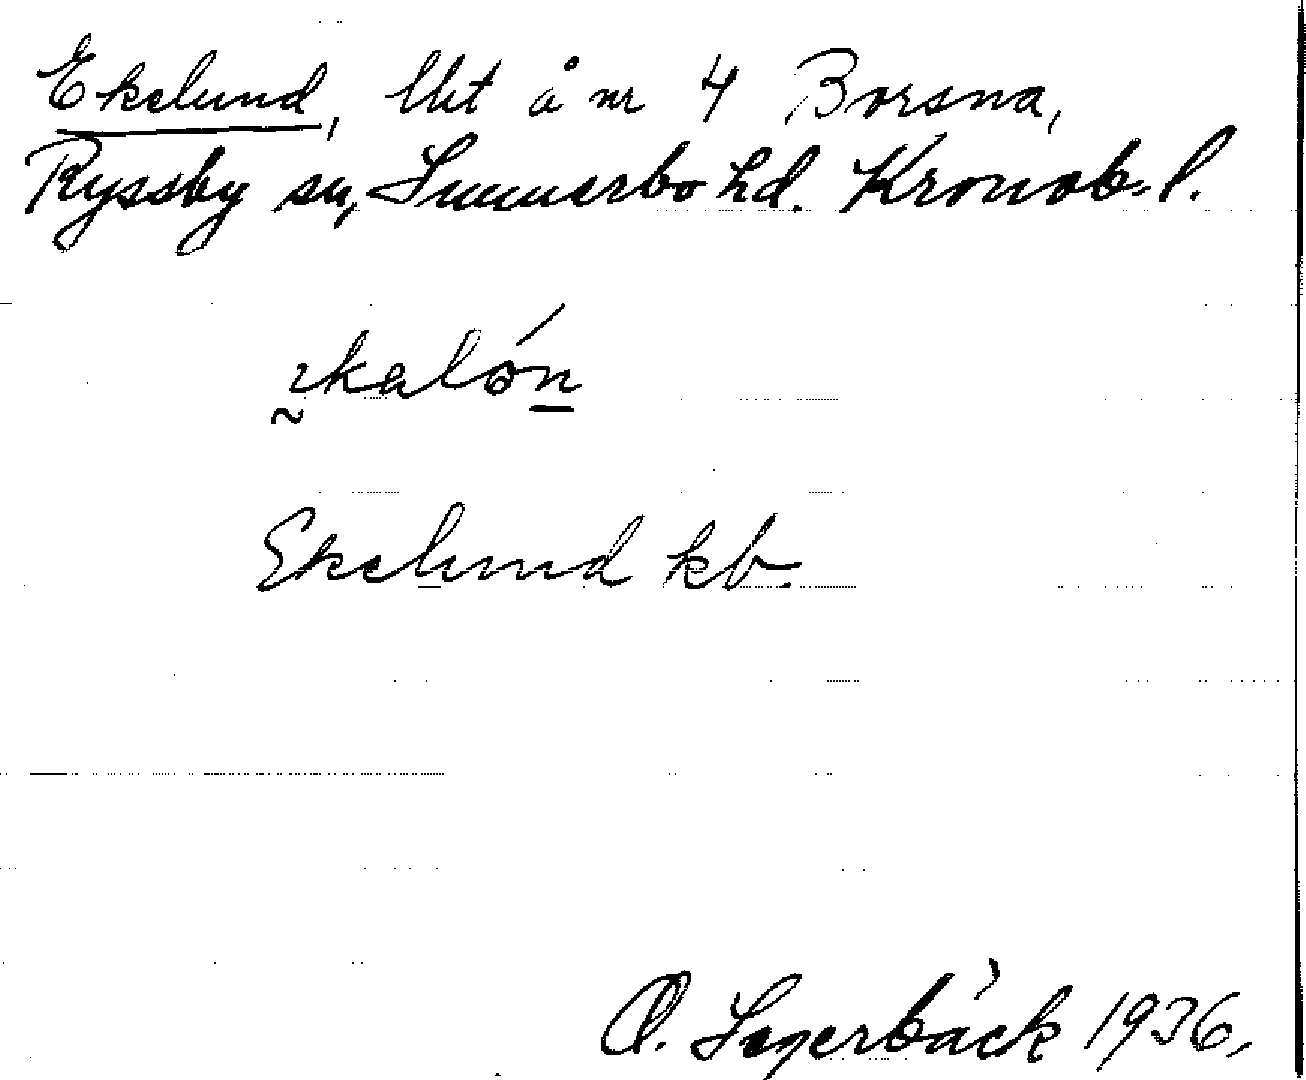 Ekelund, lht å nr 4 Borsna,
Ryssby sn, Sunnerbo hd. Kronob. l.
Ekelund kb.
O. Lagerbäck 1936,